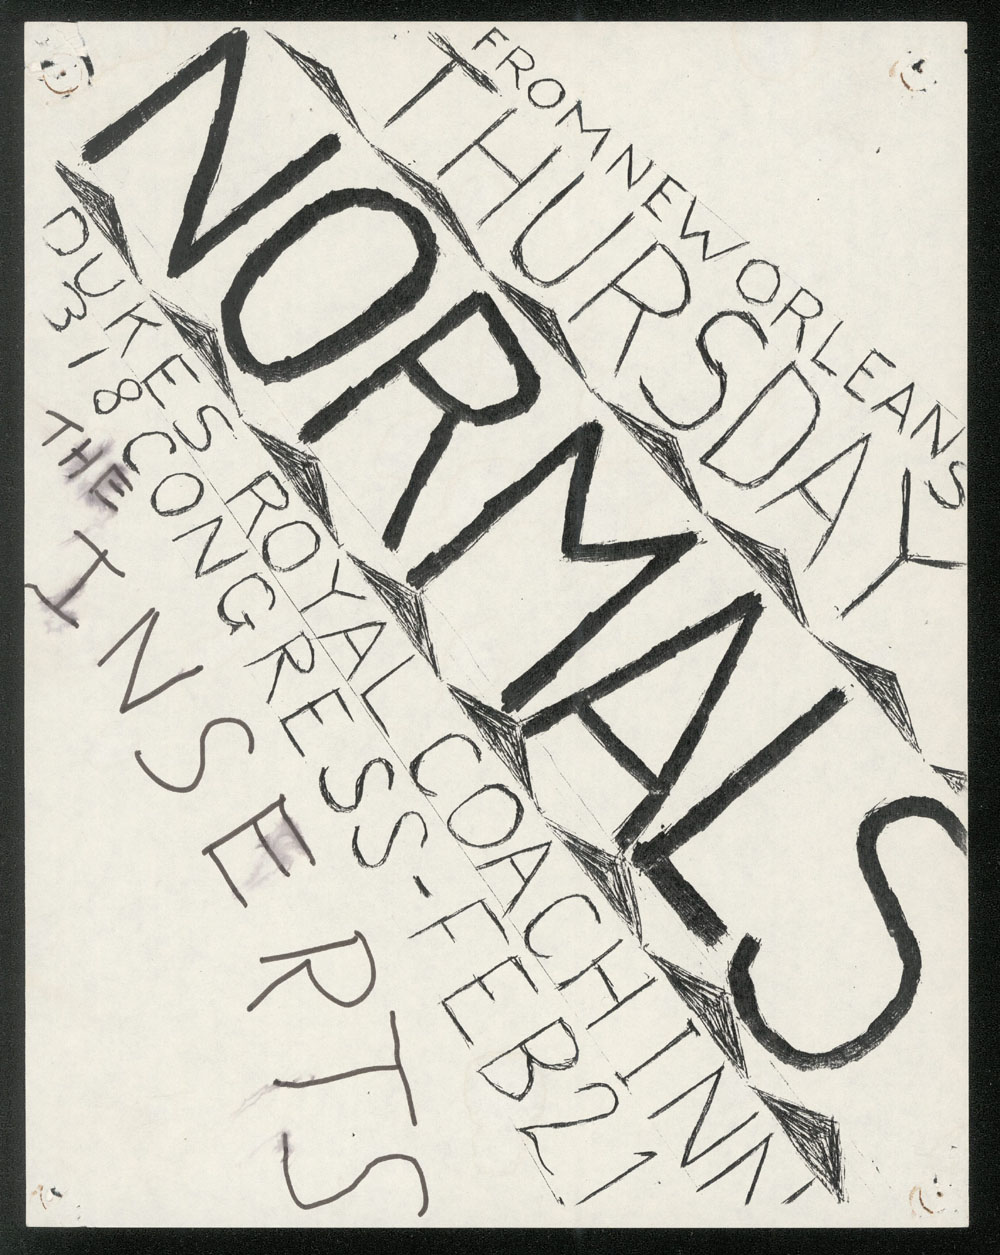 FROM NEW ORLEANS
THURSDAY
NORMALS
DUKES ROYAL COACH INN
318 CONGRESS-FEB 21
THE INSERTS